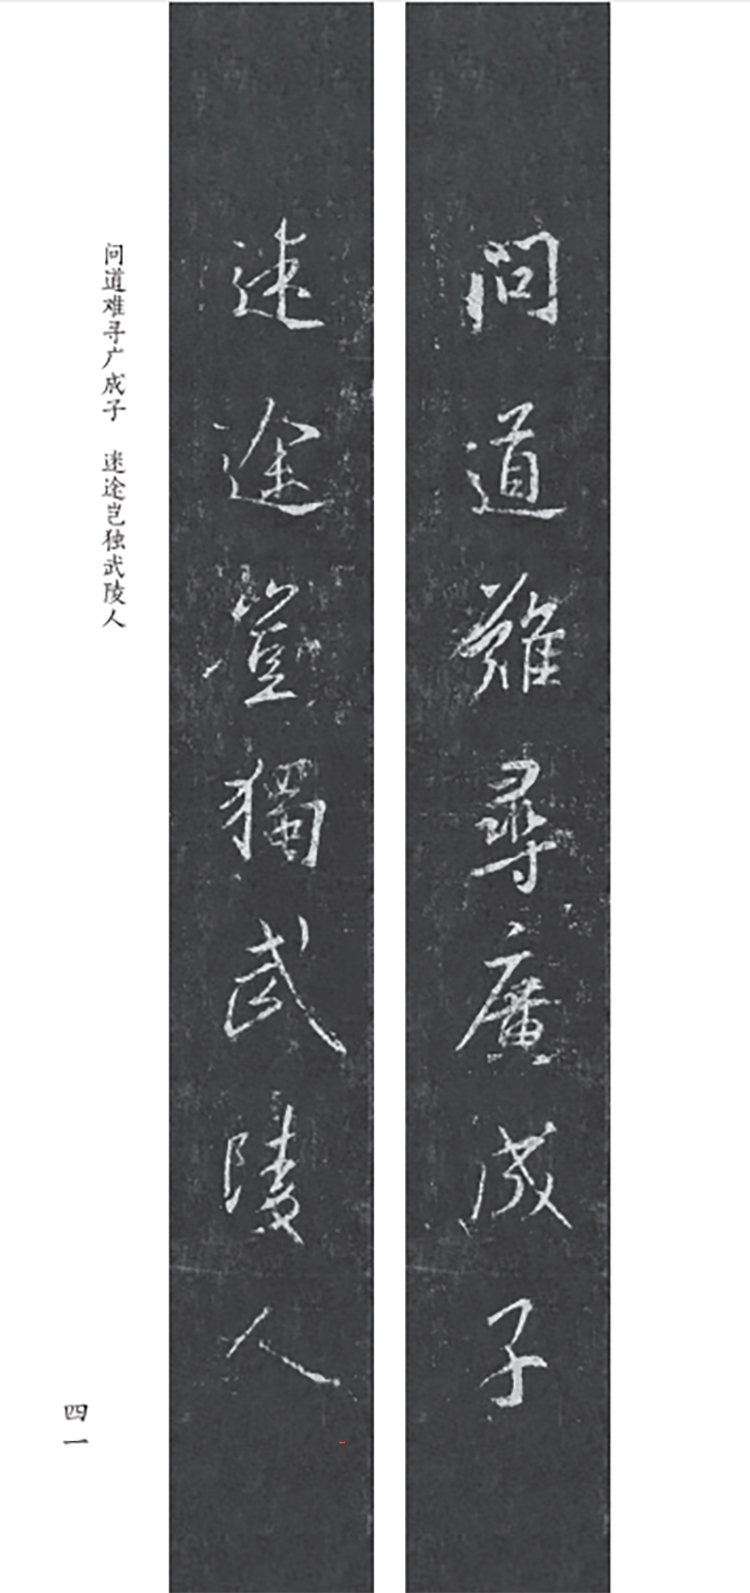 問道難尋廣成子
迷途豈獨武陵人
问道难寻广成子　迷途岂独武陵人
四一